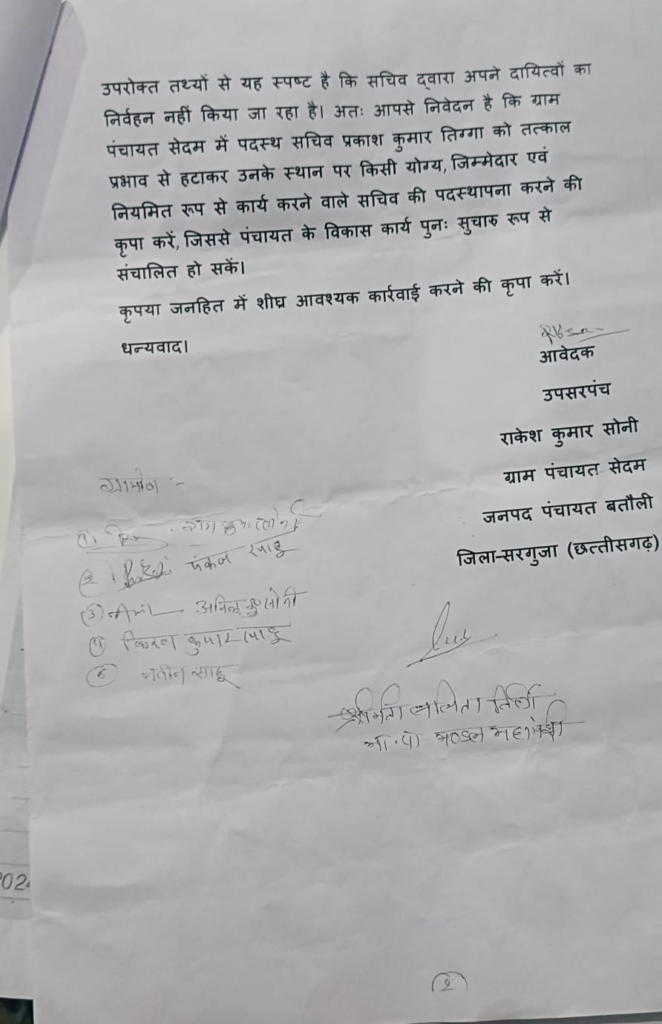 उपरोक्त तथ्यों से यह स्पष्ट है कि सचिव द्वारा अपने दायित्वों का
निर्वहन नहीं किया जा रहा है। अतः आपसे निवेदन है कि ग्राम
पंचायत सेदम में पदस्थ सचिव प्रकाश कुमार तिग्गा को तत्काल
प्रभाव से हटाकर उनके स्थान पर किसी योग्य, जिम्मेदार एवं
नियमित रूप से कार्य करने वाले सचिव की पदस्थापना करने की
कृपा करें, जिससे पंचायत के विकास कार्य पुनः सुचारु रूप से
संचालित हो सकें।
कृपया जनहित में शीघ्र आवश्यक कार्रवाई करने की कृपा करें।
धन्यवाद।
आवेदक
उपसरपंच
राकेश कुमार सोनी
ग्राम पंचायत सेदम
जनपद पंचायत बतौली
जिला-सरगुजा (छत्तीसगढ़)
ग्रामीण -
(1)
(2) पंकज साहू
(3) अनिल कु सोनी
(4) किरण कुमार साहू
(5) नवीन साहू
श्रीमति ललिता तिर्की
भा.पा मण्डल महामंत्री
202
(2)